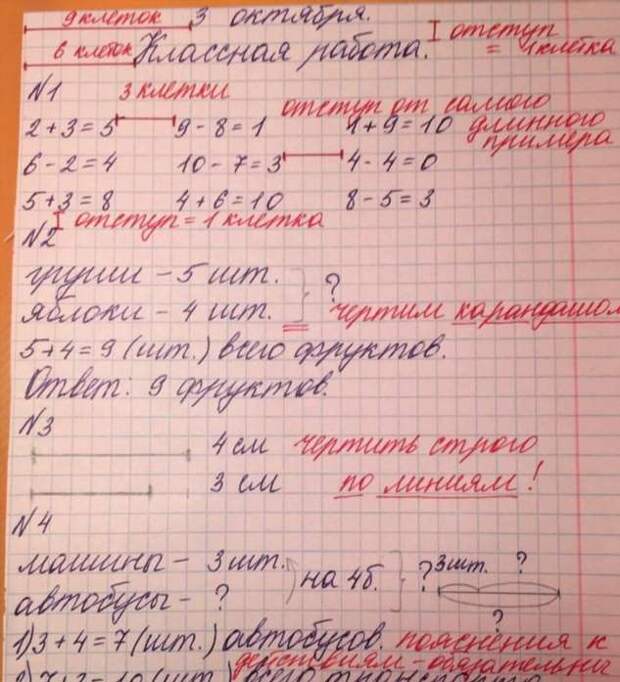 9 клеток 3 октября.
6 клеток Классная работа. отступ = 1 клетка
№1 3 клетки отступ от самого длинного примера
2+3=5 9-8=1 1+9=10
6-2=4 10-7=3 4-4=0
5+3=8 4+6=10 8-5=3
отступ = 1 клетка
№2
груши - 5 шт.
яблоки - 4 шт. ? чертим карандашом
5+4=9 (шт.) всего фруктов.
Ответ: 9 фруктов.
№3
4 см чертить строго
3 см по линиям!
№4
машины - 3 шт. на 4 б. ? 3 шт. ?
автобусы - ? ?
1) 3+4=7 (шт.) автобусов. пояснения к
действиям - обязательны
2) 7+3=10 (шт.) всего транспорта